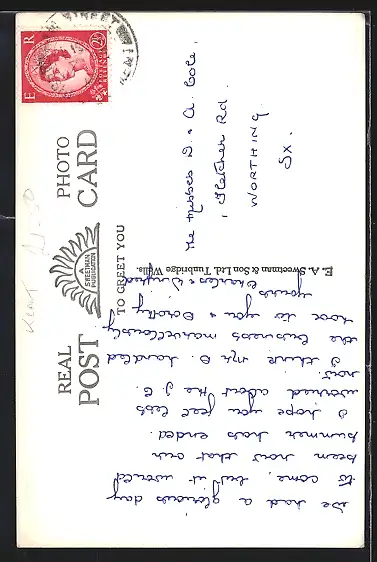 We had a glorious day
to come, but it would
seem now that our
summer has ended.
I hope you feel less
worried about the J.C.
now.
I think Mr. D. handled
the business marvellously
Love to you & Dorothy
Yours
Charles & Winifred
REAL PHOTO
POST CARD
A
SWEETMAN
PUBLICATION
TO GREET YOU
E. A. Sweetman & Son Ltd. Tunbridge Wells.
Kent
E R
2½
The Misses D. & A. Cole,
1 Fletcher Rd.
WORTHING
Sx.